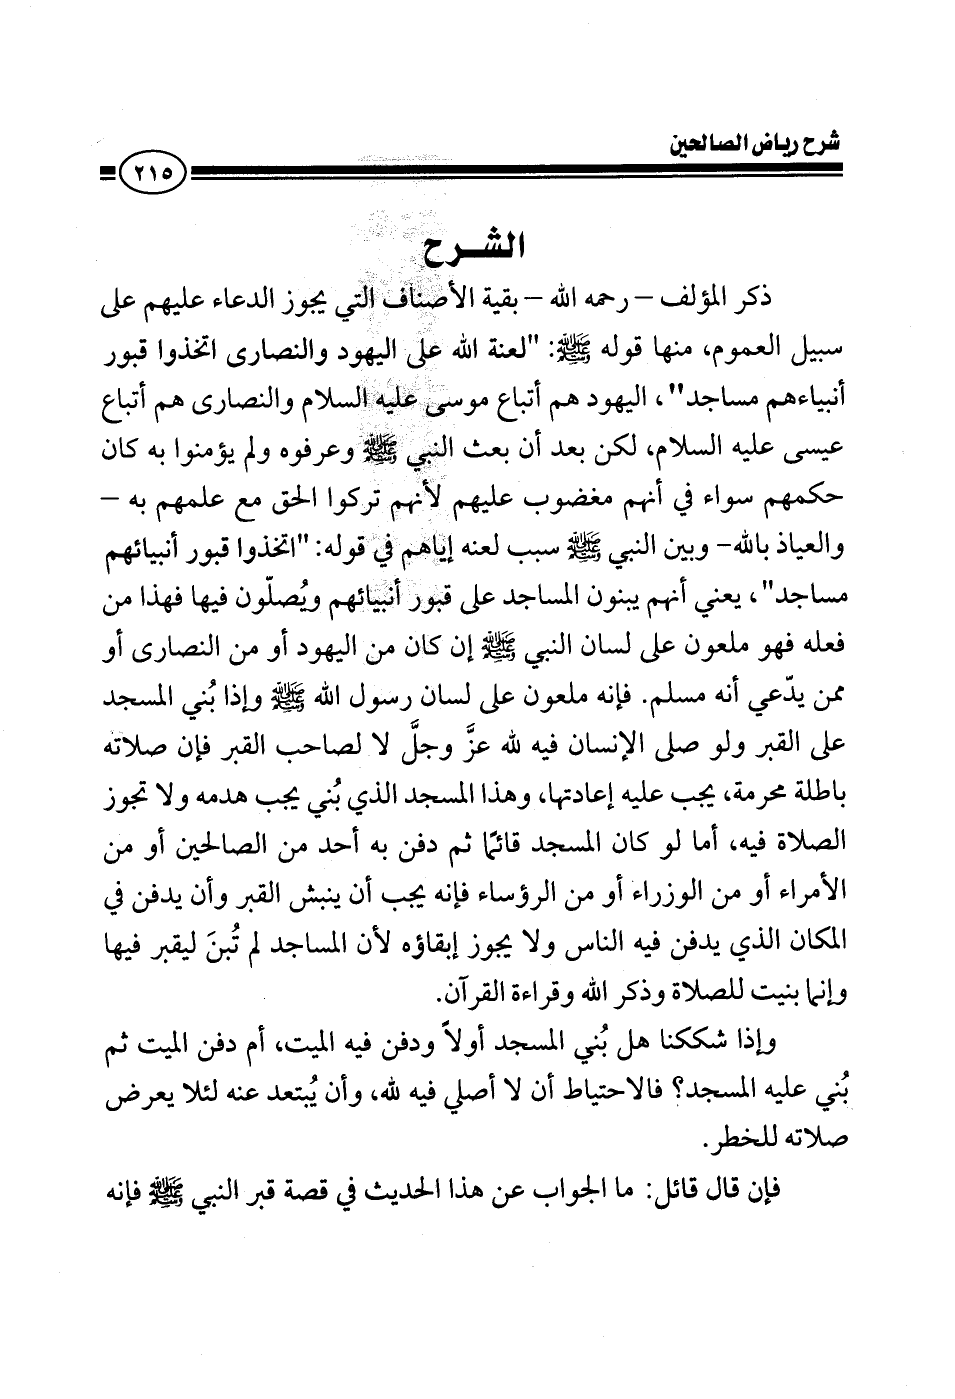 شرح رياض الصالحين
٢١٥
الشــرح
ذكر المؤلف – رحمه الله – بقية الأصناف التي يجوز الدعاء عليهم على
سبيل العموم، منها قوله ﷺ: "لعنة الله على اليهود والنصارى اتخذوا قبور
أنبياءهم مساجد"، اليهود هم أتباع موسى عليه السلام والنصارى هم أتباع
عيسى عليه السلام، لكن بعد أن بعث النبي ﷺ وعرفوه ولم يؤمنوا به كان
حكمهم سواء في أنهم مغضوب عليهم لأنهم تركوا الحق مع علمهم به –
والعياذ بالله– وبين النبي ﷺ سبب لعنه إياهم في قوله: "اتخذوا قبور أنبيائهم
مساجد"، يعني أنهم يبنون المساجد على قبور أنبيائهم ويُصلّون فيها فهذا من
فعله فهو ملعون على لسان النبي ﷺ إن كان من اليهود أو من النصارى أو
ممن يدّعي أنه مسلم. فإنه ملعون على لسان رسول الله ﷺ وإذا بُني المسجد
على القبر ولو صلى الإنسان فيه لله عزَّ وجلَّ لا لصاحب القبر فإن صلاته
باطلة محرمة، يجب عليه إعادتها، وهذا المسجد الذي بُني يجب هدمه ولا تجوز
الصلاة فيه، أما لو كان المسجد قائمًا ثم دفن به أحد من الصالحين أو من
الأمراء أو من الوزراء أو من الرؤساء فإنه يجب أن ينبش القبر وأن يدفن في
المكان الذي يدفن فيه الناس ولا يجوز إبقاؤه لأن المساجد لم تُبنَ ليقبر فيها
وإنما بنيت للصلاة وذكر الله وقراءة القرآن.
وإذا شككنا هل بُني المسجد أولاً ودفن فيه الميت، أم دفن الميت ثم
بُني عليه المسجد؟ فالاحتياط أن لا أصلي فيه لله، وأن يُبتعد عنه لئلا يعرض
صلاته للخطر.
فإن قال قائل: ما الجواب عن هذا الحديث في قصة قبر النبي ﷺ فإنه